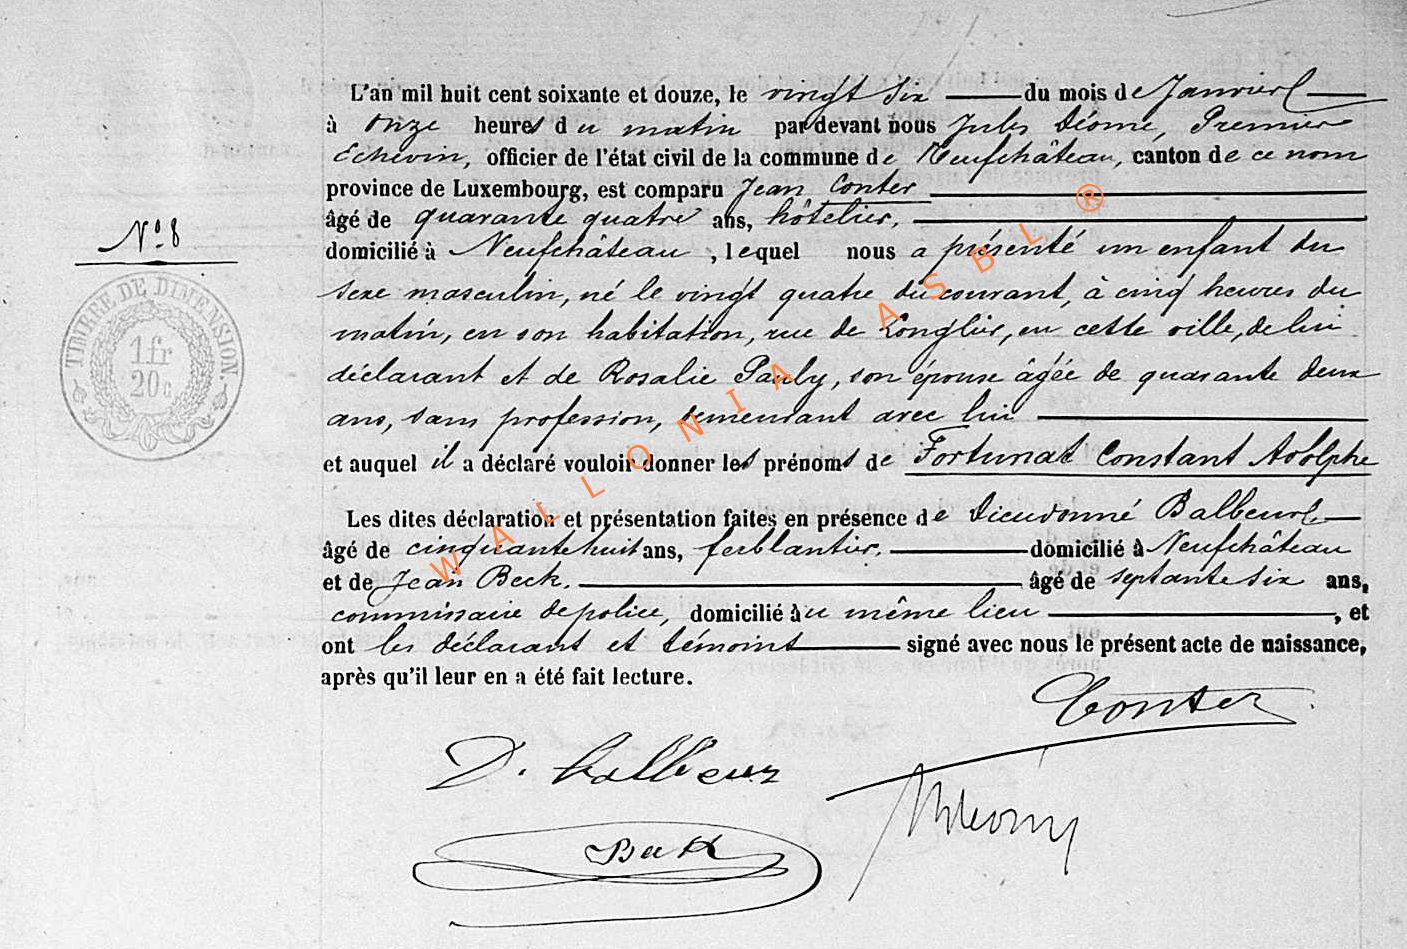 L'an mil huit cent soixante et douze, le vingt six du mois de Janvier
à onze heures du matin par devant nous Jules Déome, Premier
Echevin, officier de l'état civil de la commune de Neufchâteau, canton de ce nom
province de Luxembourg, est comparu Jean Conter
âgé de quarante quatre ans, hôtelier,
N° 8
domicilié à Neufchâteau, lequel nous a présenté un enfant du
sexe masculin, né le vingt quatre du courant, à cinq heures du
matin, en son habitation, rue de Longlier, en cette ville, de lui
déclarant et de Rosalie Pauly, son épouse âgée de quarante deux
ans, sans profession, demeurant avec lui
et auquel il a déclaré vouloir donner les prénoms de Fortunat Constant Adolphe
Les dites déclaration et présentation faites en présence de Dieudonné Balbeur
âgé de cinquante huit ans, ferblantier, domicilié à Neufchâteau
et de Jean Beck. âgé de septante six ans,
commissaire de police, domicilié au même lieu, et
ont les déclarant et témoins signé avec nous le présent acte de naissance,
après qu'il leur en a été fait lecture.
TIMBRE DE DIMENSION.
1 fr
20 c
Conter
D. Balbeur
Beck
WALLONIA ASBL ®